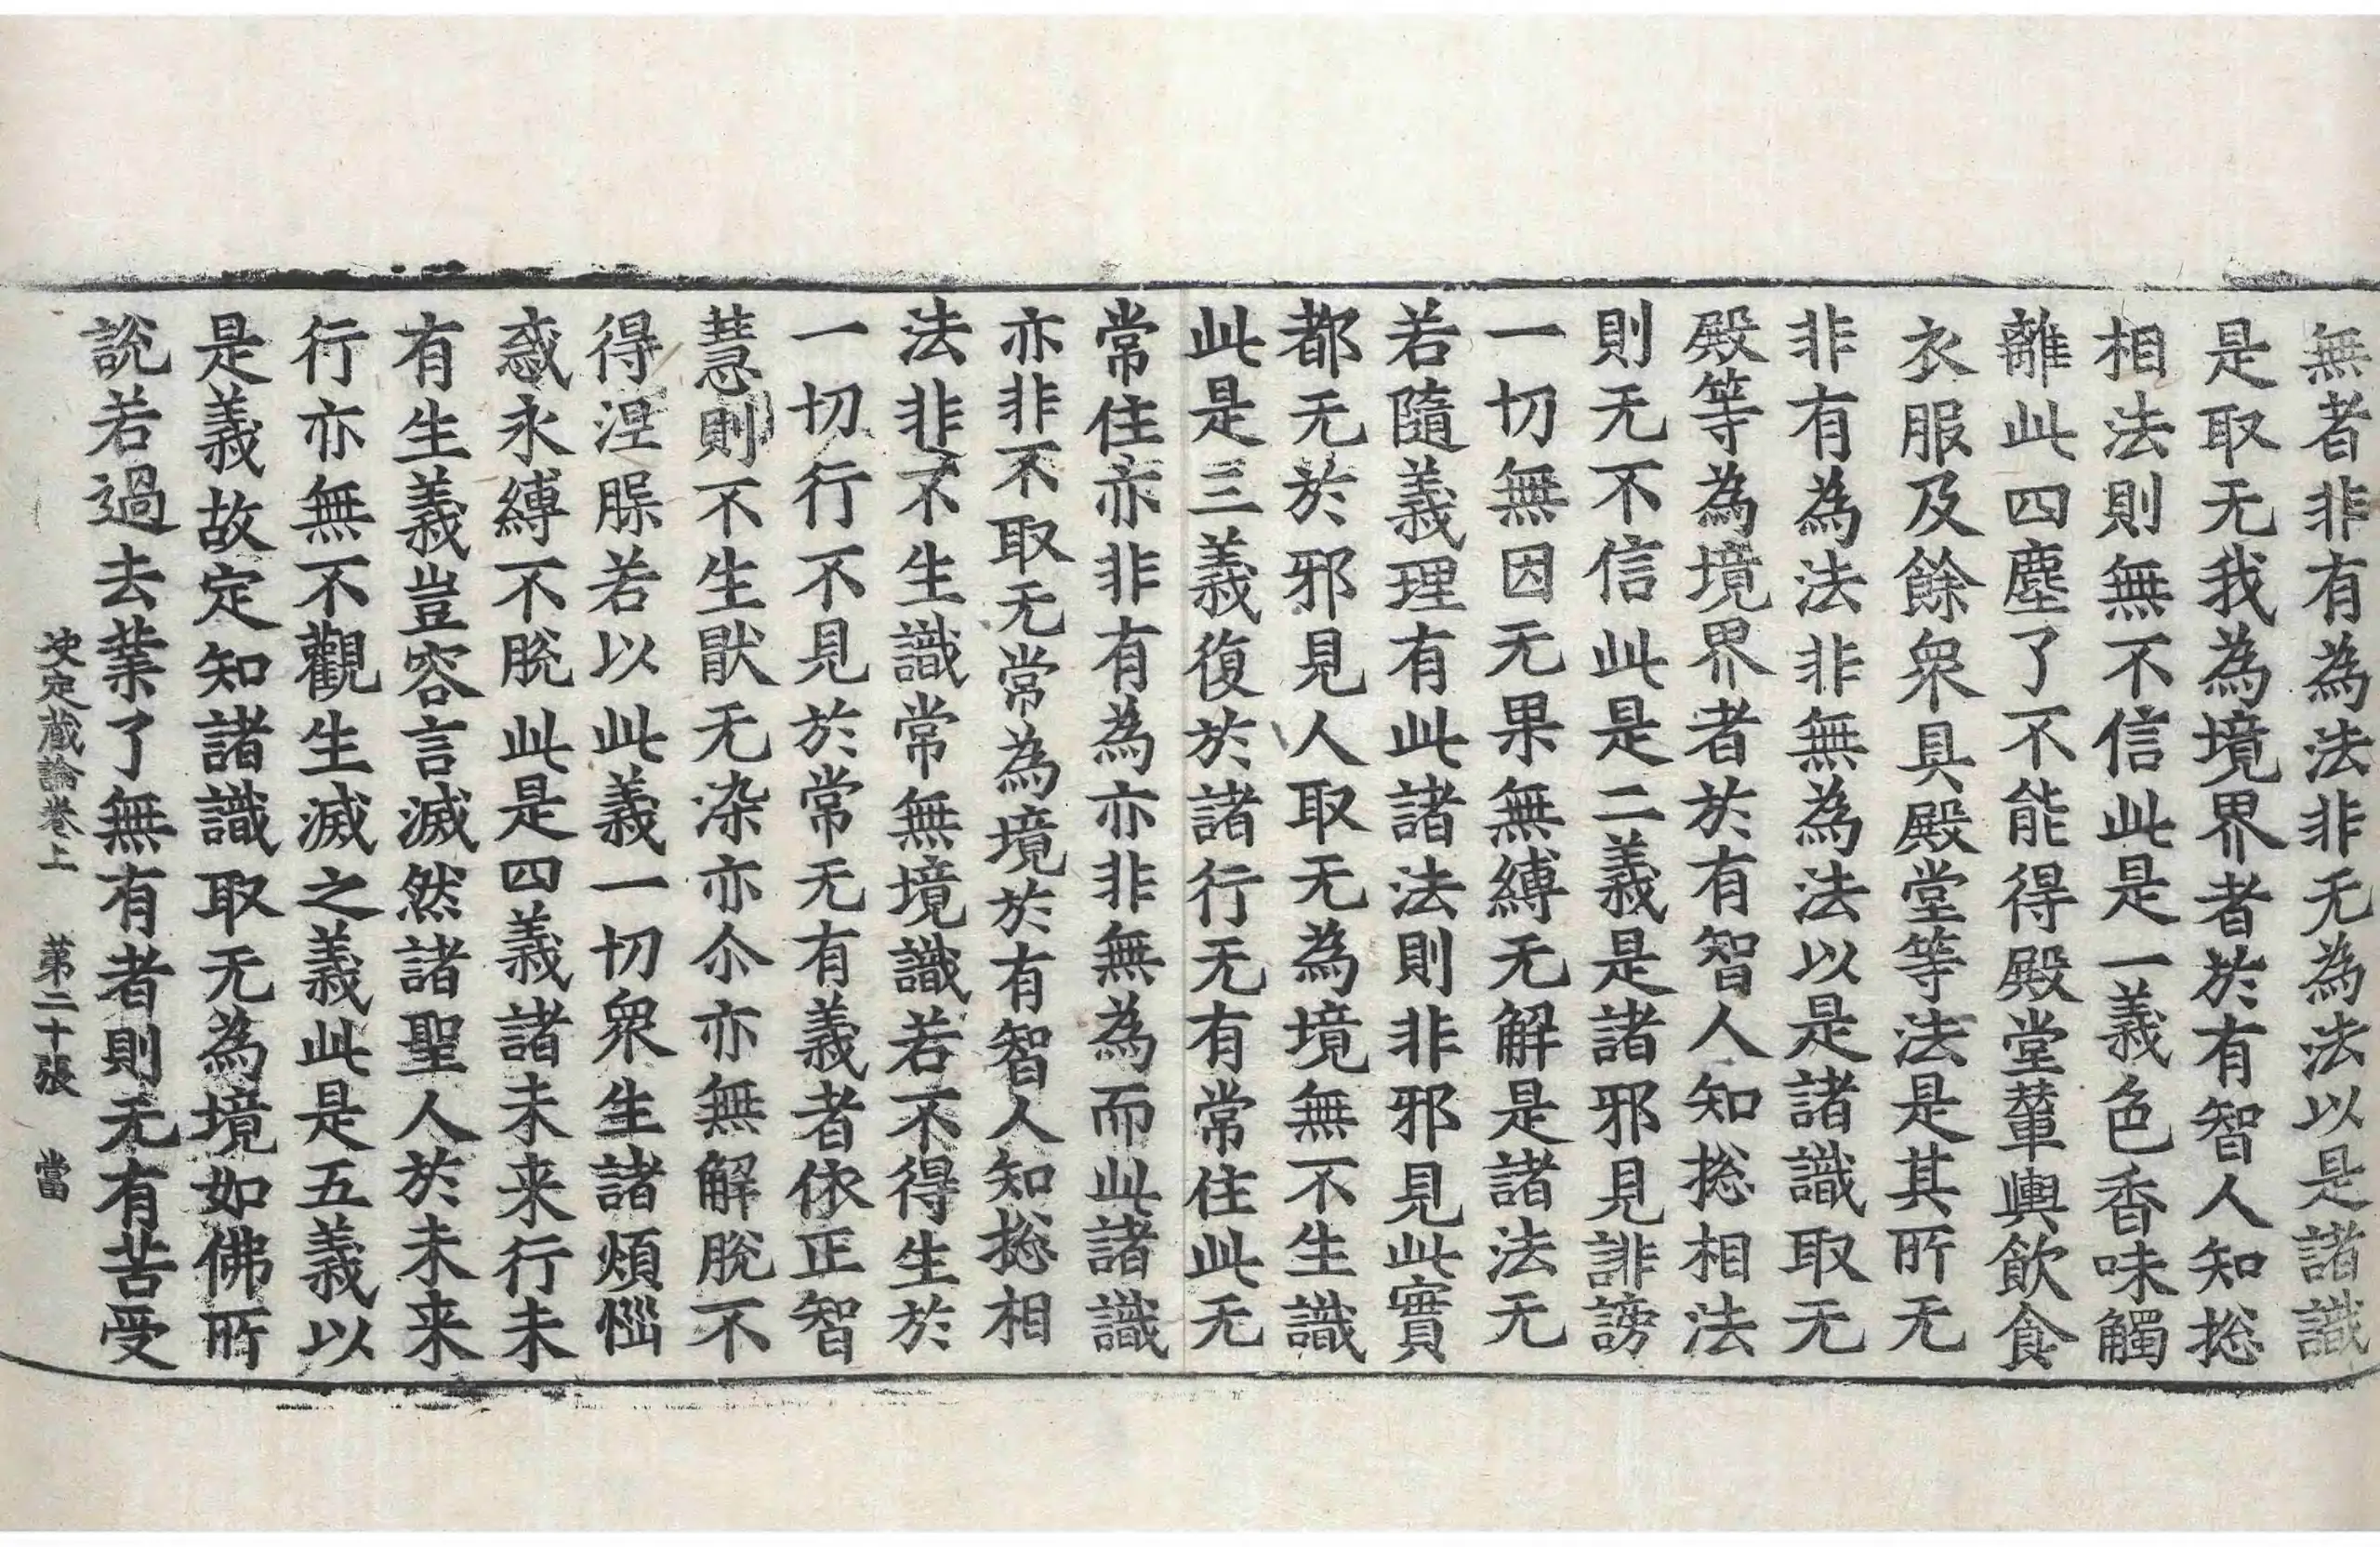 無者非有為法非无為法以是諸識
是取无我為境界者於有智人知捴
相法則無不信此是一義色香味觸
離此四塵了不能得殿堂輦輿飲食
衣服及餘衆具殿堂等法是其所无
非有為法非無為法以是諸識取无
殿等為境界者於有智人知捴相法
則无不信此是二義是諸邪見誹謗
一切無因无果無縛无解是諸法无
若隨義理有此諸法則非邪見此實
都无於邪見人取无為境無不生識
此是三義復於諸行无有常住此无
常住亦非有為亦非無為而此諸識
亦非不取无常為境於有智人知捴相
法非不生識常無境識若不得生於
一切行不見於常无有義者依正智
慧則不生猒无染亦尒亦無解脫不
得涅槃若以此義一切衆生諸煩惱
惑永縛不脫此是四義諸未来行未
有生義豈容言滅然諸聖人於未来
行亦無不觀生滅之義此是五義以
是義故定知諸識取无為境如佛所
說若過去業了無有者則无有苦受
决定蔵論卷上　第二十張　當